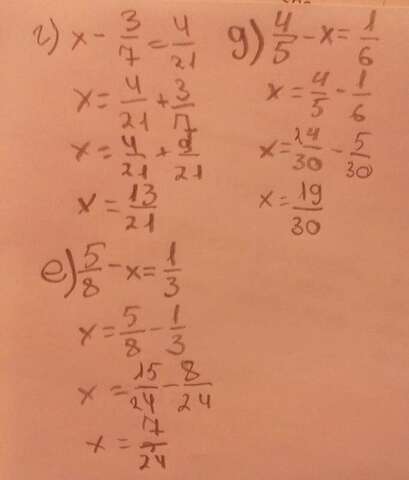 г) x - 3/7 = 4/21
x = 4/21 + 3/7
x = 4/21 + 9/21
x = 13/21
д) 4/5 - x = 1/6
x = 4/5 - 1/6
x = 24/30 - 5/30
x = 19/30
е) 5/8 - x = 1/3
x = 5/8 - 1/3
x = 15/24 - 8/24
x = 7/24